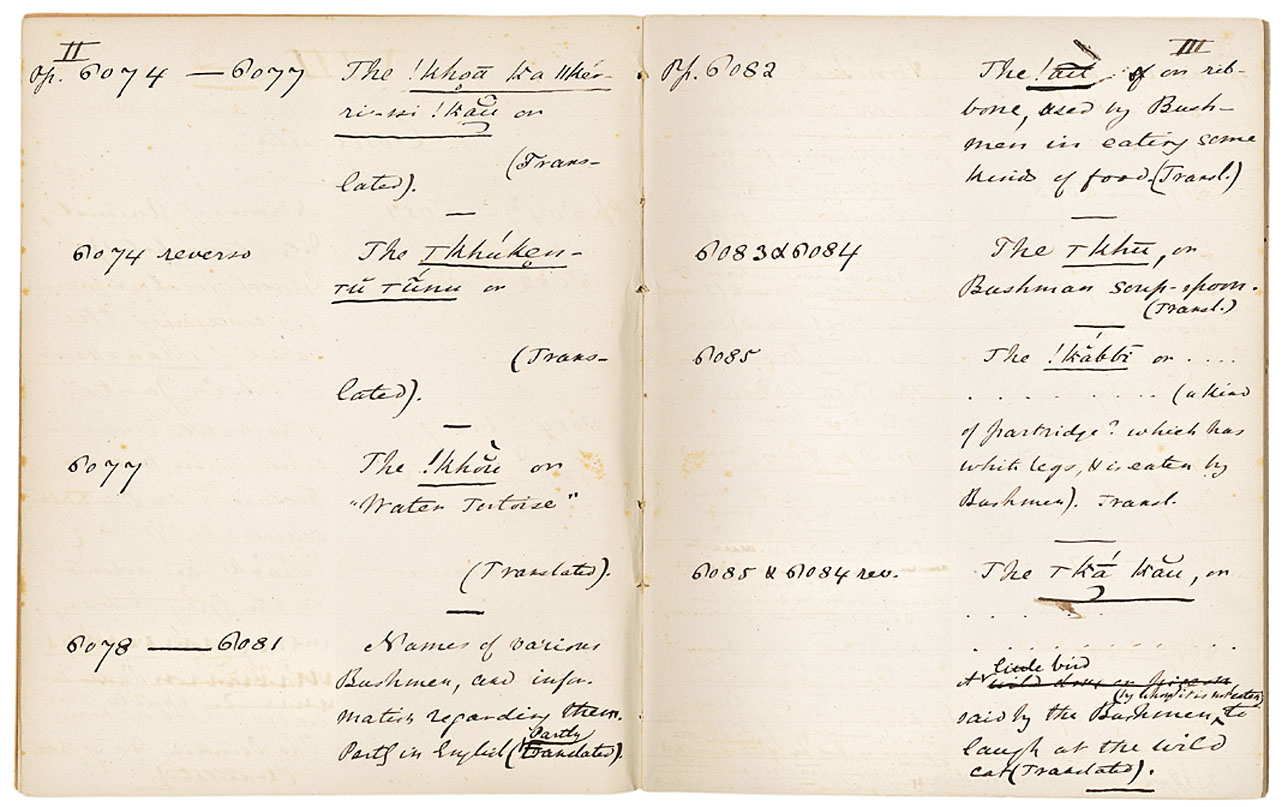 II
Pp. 6074 — 6077 The !khoā ka ǁkér-
ri-si !kău̅ or
(Trans-
lated).
6074 reverso The ꞱKhúken-
Ʇŭ Ʇŭnu or
(Trans-
lated).
6077 The !khòu̅ or
"Water Tortoise"
(Translated).
6078 — 6081 Names of various
Bushmen, and infor-
mation regarding them.
Partly in English (Partly
translated).
III
Pp. 6082 The !au̅ or rib-
bone, used by Bush-
men in eating some
kinds of food. (Transl.)
6083 & 6084 The Ʇkhū, or
Bushman soup-spoon.
(Transl.)
6085 The !kắbbĭ or . . . .
. . . . . . . . . . (a kind
of partridge? which has
white legs, & is eaten by
Bushmen). Transl.
6085 & 6084 rev. The Ʇká kău, or
. . . . . . . . . . .
. . . . . . . . . . .
little bird
A wild dove or pigeon
(by whom it is not eaten)
said by the Bushmen, to
laugh at the wild
cat (Translated).